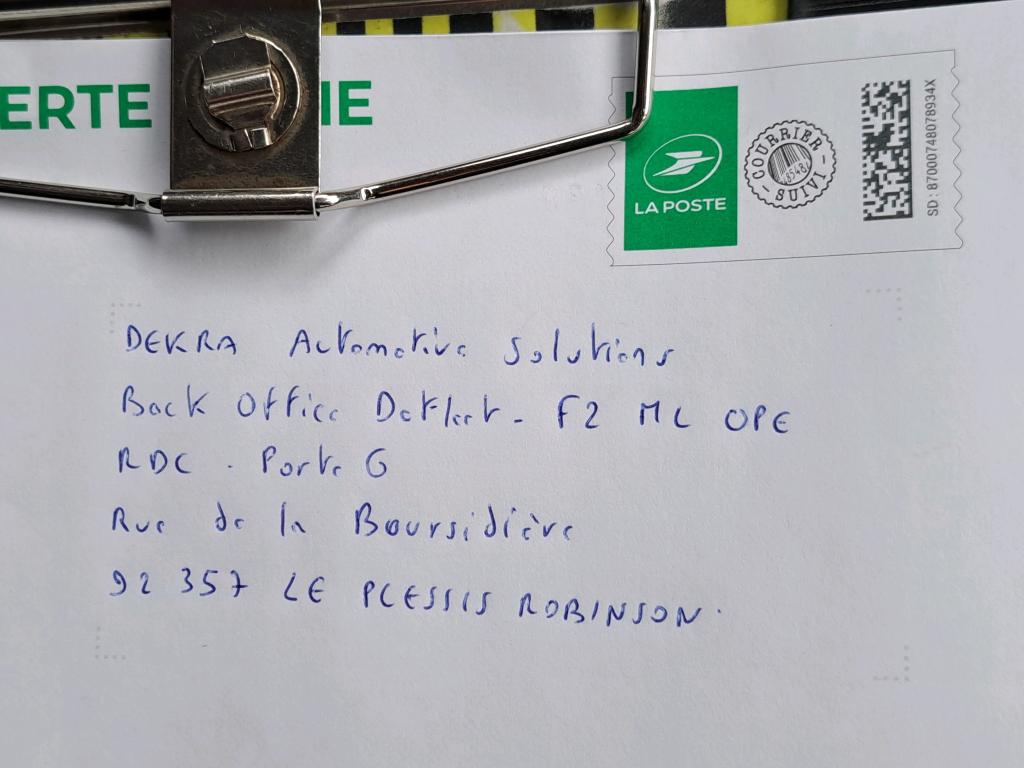 ERTE IE
LA POSTE
COURRIER SUIVI
SD : 87000748078934X
DEKRA Automotive Solutions
Back Office Datfleet - F2 ML OPE
RDC - Porte G
Rue de la Boursidière
92 357 LE PLESSIS ROBINSON.